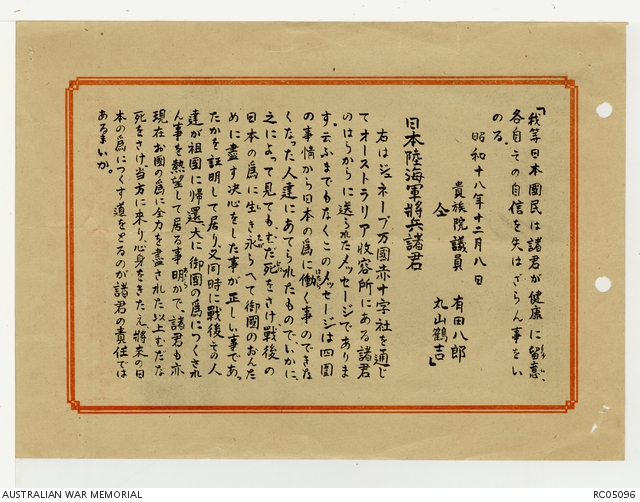 「我等日本國民は諸君が健康に留意
各自その自信を失はざらん事をい
のる。
昭和十八年十二月八日
貴族院議員 有田八郎
仝 丸山鶴吉」
日本陸海軍將兵諸君
右はジュネーブ万國赤十字社を通じ
てオーストラリア收容所にある諸君
のはらからに送られたメッセージでありま
す。云ふまでもなくこのメッセージは四圍
の事情から日本の為に働く事のできな
くなった人達にあてられたもので、いかに、
之によって見ても、むだ死をさけ戰後の
日本の為に生き永らへて御國のおんた
めに盡す決心をした事が正しい事であっ
たかを証明して居り、又同時に戰後その人
達が祖國に帰還大に御國の為につくされ
ん事を熱望して居る事明かで、諸君も亦
現在お國の為に全力を盡された以上むだな
死をさけ、当方に來り、心身をきたえ、將來の日
本の為につくす道をとるのが諸君の責任では
あるまいか。
AUSTRALIAN WAR MEMORIAL
RC05096